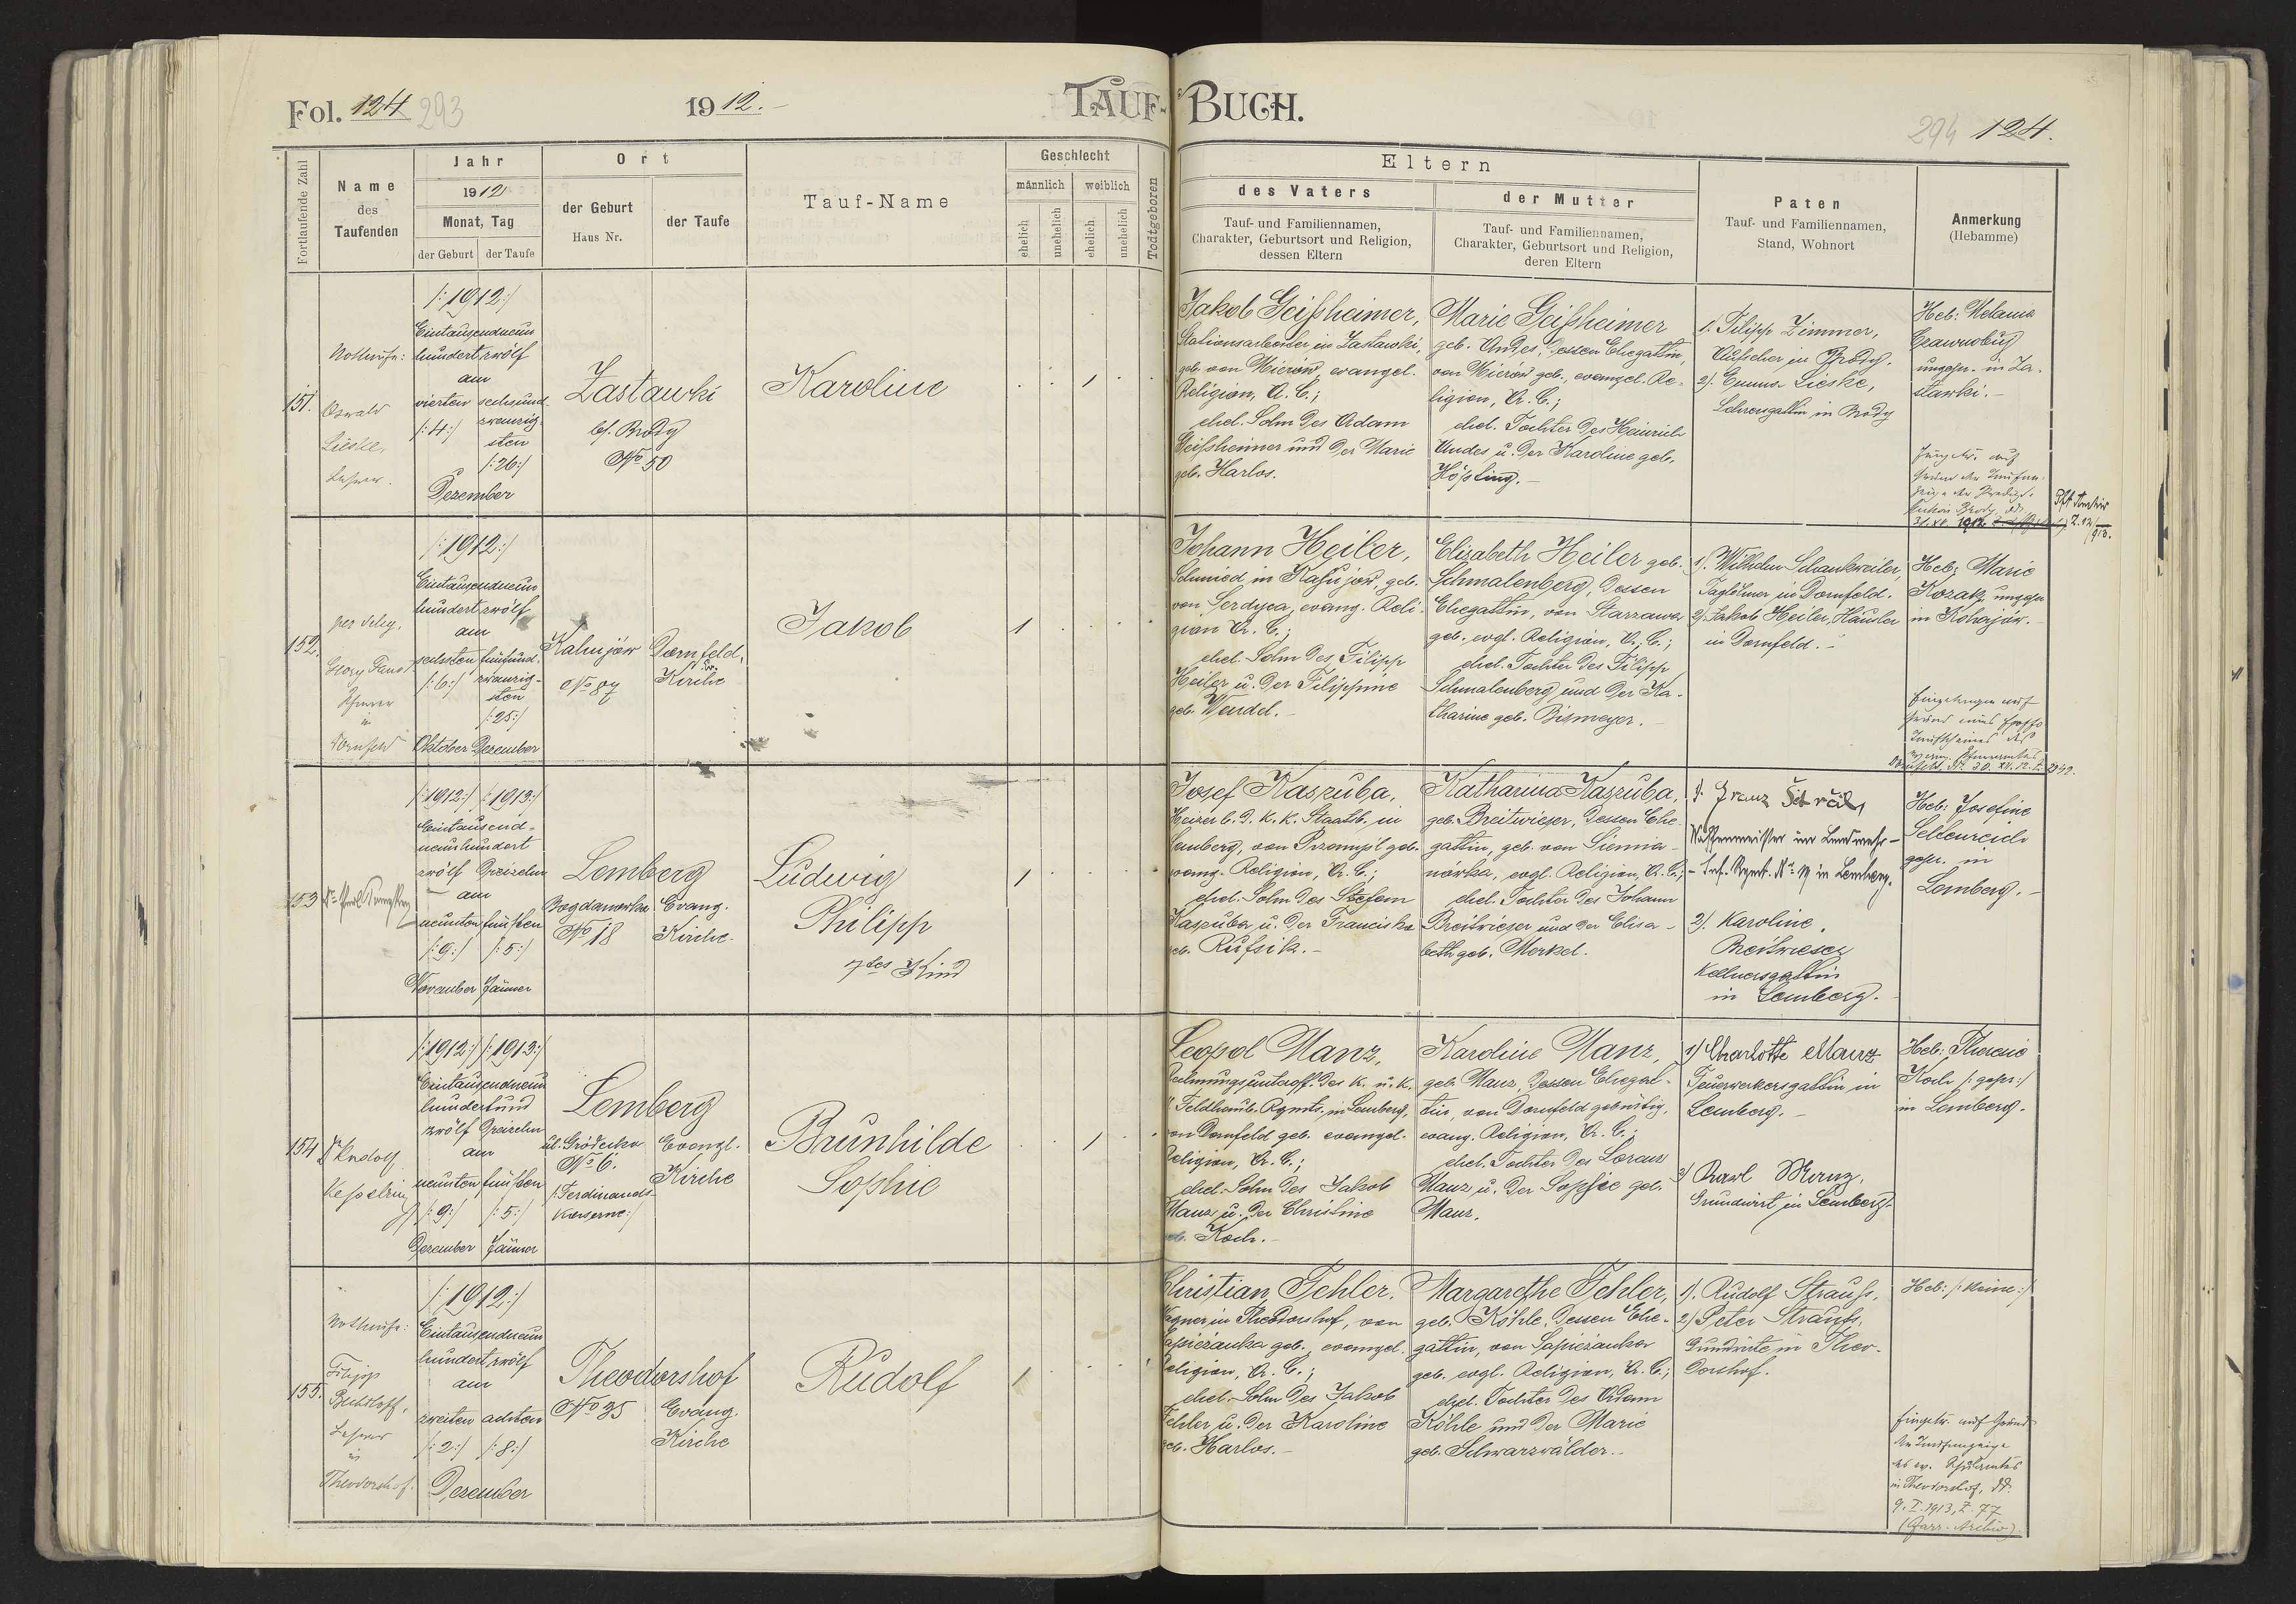 Fol. 124 293
1912.
TAUF-BUCH.
294 124.
Fortlaufende Zahl
Name
des
Taufenden
Jahr
1912
Monat, Tag
der Geburt
der Taufe
Ort
der Geburt
Haus Nr.
der Taufe
Tauf-Name
Geschlecht
männlich
weiblich
ehelich
unehelich
ehelich
unehelich
Todtgeboren
Eltern
des Vaters
Tauf- und Familiennamen,
Charakter, Geburtsort und Religion,
dessen Eltern
der Mutter
Tauf- und Familiennamen,
Charakter, Geburtsort und Religion,
deren Eltern
Paten
Tauf- und Familiennamen,
Stand, Wohnort
Anmerkung
(Hebamme)
151.
Nottaufe:
Oswald
Lieske,
Lehrer.
/:1912:/
Eintausendneun
hundertzwölf
am
vierten sechsund-
zwanzig-
/:4:/ sten
/:26:/
Dezember
Zastawki
bf. Brody
No 50
Karoline
1
Jakob Geißheimer,
Stationsarbeiter in Zastawki,
geb. von Mierów, evangel.
Religion, A. C.;
ehel. Sohn des Adam
Geißheimer und der Marie
geb. Harlos.
Marie Geißheimer
geb. Andes, dessen Ehegattin,
von Mierów geb., evangel. Re-
ligion, A. C.;
ehel. Tochter des Heinrich
Andes u. der Karoline geb.
Hößling.-
1. Filipp Zimmer,
in Brody.
2). Emma Lieske,
Lehrersgattin in Brody
Heb: Melania
ungepr. in Za-
stawki.-
152.
per deleg.
Georg Faust
Pfarrer
in
Dornfeld
/:1912:/
Eintausendneun
hundertzwölf
am
sechsten fünfund-
/:6:/ zwanzig-
sten
/:25:/
Oktober Dezember
Kahujów
No 87
Dornfeld,
Ev.
Kirche
Jakob
1
Johann Heiler,
Schmied in Kahujów, geb.
von Serdyca, evang. Reli-
gion A. C.;
ehel. Sohn des Filipp
Heiler u. der Filippine
geb. Wendel.-
Elisabeth Heiler geb.
Schmalenberg, dessen
Ehegattin, von Starzawa
geb., evgl. Religion, A. C.;
ehel. Tochter des Filipp
Schmalenberg und der Ka-
tharine geb. Bismeyer.-
1). Wilhelm Schankweiler,
Taglöhner in Dornfeld.
2). Jakob Heiler, Häusler
in Dornfeld.-
Heb: Marie
Kozak, ungepr
in Kohajów.-
153
/:1912:/ /:1913:/
Eintausend-
neunhundert
zwölf dreizehn
am
neunten fünften
/:9:/ /:5:/
November Jänner
Lemberg
Bogdanowka
No 18
Evang.
Kirche-
Ludwig
Philipp
7tes Kind
1
Josef Kaszuba,
Heizer b. d. k. k. Staatsb. in
Lemberg, von Przemysl geb.
evang. Religion, A. C.;
ehel. Sohn des Stefan
Kaszuba u. der Franciska
geb. Rufsik.-
Katharina Kaszuba,
geb. Breitwieser, dessen Ehe-
gattin, geb. von Siemia-
nówka, evgl. Religion, A. C.;
ehel. Tochter des Johann
Breitwieser und der Elisa-
beth geb. Merkel.
1. Franz
Waffenmeister im Landwehr-
- Inf. Regmt. No 19 in Lemberg.
2). Karoline
Breitwieser
Kellnersgattin
in Lemberg.-
Heb: Josefine
gepr. in
Lemberg.-
154
Dr Rudolf
Kesselring
/:1912:/ /:1913:/
Eintausendneun
hundertund
zwölf dreizehn
am
neunten fünften
/:9:/ /:5:/
Dezember Jänner
Lemberg
ul. Gródecka
No 6.
/:Ferdinands-
Kaserne:/
Evangl.
Kirche
Brunhilde
Sophie
1
Leopold Manz,
Rechnungsunteroff. des k. u. k.
Feldhaub. Rgmts. in Lemberg,
von Dornfeld geb. evangel.
Religion, A. C.;
ehel. Sohn des Jakob
Manz u. der Christine
geb. Koch.-
Karoline Manz,
geb. Manz, dessen Ehegat-
tin, von Dornfeld gebürtig,
evang. Religion, A. C.;
ehel. Tochter des Lorenz
Manz u. der Sophie geb.
Manz.
1) Charlotte Manz
Feuerwerkersgattin in
Lemberg.-
2) Karl Manz,
Grundwirt in Lemberg-
Heb: Therese
Koch /:gepr:/
in Lemberg.
155.
Nottaufe:
Filipp
Bechtloff,
Lehrer
in
Theodorshof.
/:1912:/
Eintausendneun
hundertzwölf
am
zweiten achten
/:2:/ /:8:/
Dezember
Theodorshof
No 35
Evang.
Kirche
Rudolf
1
Christian Fehler,
Wagner in Theodorshof, von
Sapiezanka geb., evangel.
Religion, A. C.;
ehel. Sohn des Jakob
Fehler u. der Karoline
geb. Harlos.-
Margarethe Fehler,
geb. Köhle, dessen Ehe-
gattin, von Sapiezanka
geb. evgl. Religion, A. C.;
ehel. Tochter des Adam
Köhle und der Marie
geb. Schwarzwälder.-
1). Rudolf Strauß,
2) Peter Strauß,
Grundwirte in Theo-
dorshof.
Heb: /:keine:/
Eingetr. auf Grund
der Taufanzeige
des ev. Schulamtes
in Theodorshof, dd.
9. I. 1913, Z. 77
(Pfarr-Archiv).